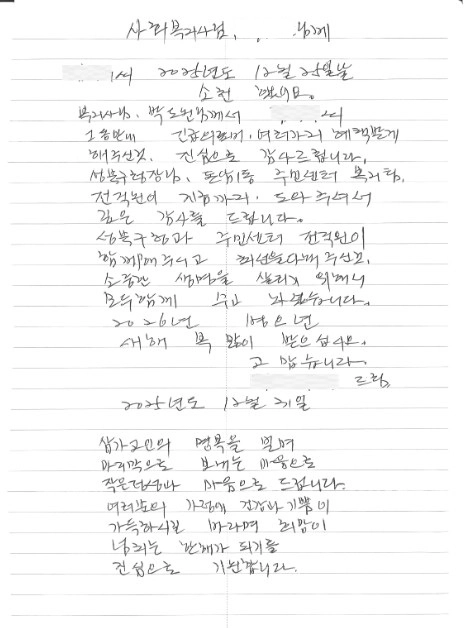 사회복지사님, . . 님께
씨 2025년도 12월 25일날
소천 했어요.
복지사님, 박도원님께서 씨
그동안에 긴급의료비, 여러가지 혜택받게
해주신것, 진심으로 감사드립니다.
성북구청장님, 돈암1동 주민센터 복지팀,
전직원이 지금까지. 도와주셔서
깊은 감사를 드립니다.
성북구청과 주민센터 전직원이
함께해주시고 최선을다해주신것,
소중한 생명을 살리기 위해서
모두함께 수고 하셨습니다.
2026년 병오년
새해 복 많이 받으십시요.
고맙습니다.
드림.
2025년도 12월 31일
삼가고인의 명복을 빌며
마지막으로 보내는 마음으로
작은정성과 마음으로 드립니다.
여러분의 가정에 건강과 기쁨이
가득하시길 바라며 희망이
넘치는 한해가 되기를
진심으로 기원합니다.